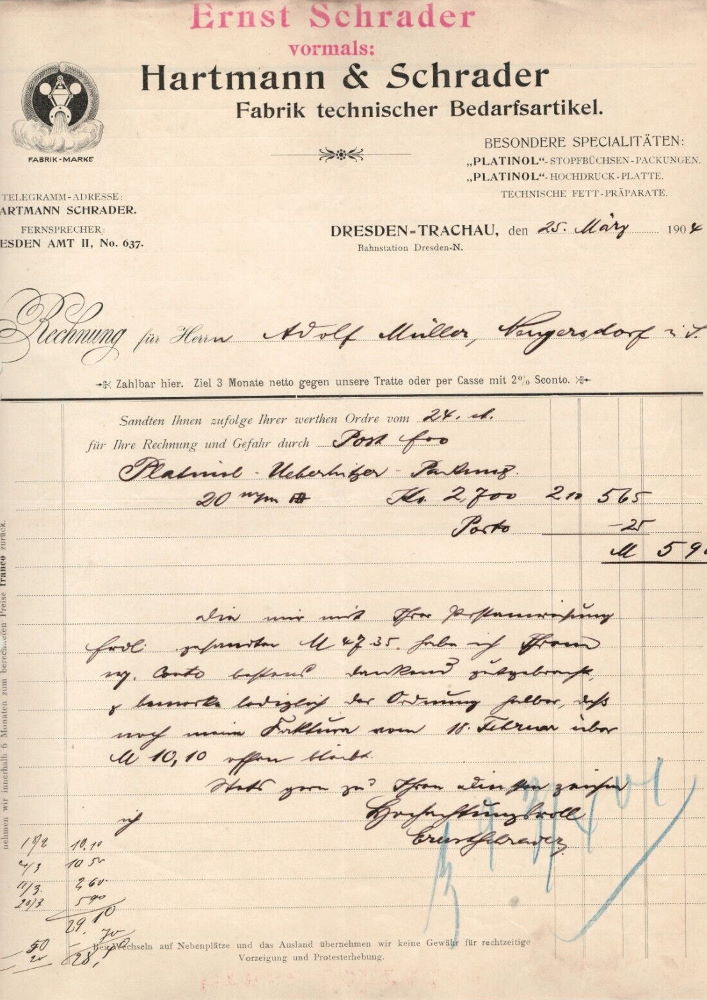 Ernst Schrader
vormals:
Hartmann & Schrader
Fabrik technischer Bedarfsartikel.
FABRIK-MARKE
BESONDERE SPECIALITÄTEN:
„PLATINOL“-STOPFBÜCHSEN-PACKUNGEN.
„PLATINOL“-HOCHDRUCK-PLATTE.
TECHNISCHE FETT-PRÄPARATE.
TELEGRAMM-ADRESSE:
ARTMANN SCHRADER.
FERNSPRECHER:
ESDEN AMT II, No. 637.
DRESDEN-TRACHAU, den 25. März 1904
Bahnstation Dresden-N.
Rechnung für Herrn Adolf Müller, Neugersdorf i. S.
Zahlbar hier. Ziel 3 Monate netto gegen unsere Tratte oder per Casse mit 2% Sconto.
Sandten Ihnen zufolge Ihrer werthen Ordre vom 24. ct.
für Ihre Rechnung und Gefahr durch Post fco
Platinol - Packung.
20 m/m Ko. 2,700 210 565
Porto -25
M 590
nehmen wir innerhalb 6 Monaten zum berechneten Preise franco zurück.
Die mir mit Ihrer Postanweisung
frdl. gesandten M 47.35. habe ich Ihrem
w. Conto bestens dankend gutgebracht,
& bemerke lediglich der Ordnung halber, daß
noch meine Faktura vom 18. Februar über
M 10,10 offen bleibt.
Stets gern zu Ihren Diensten zeichne
ich Hochachtungsvoll
Ernst Schrader
18/2 10.10
4/3 10 50
11/3. 2 60
20/3 5 90
29.10
Bei Wechseln auf Nebenplätze und das Ausland übernehmen wir keine Gewähr für rechtzeitige
Vorzeigung und Protesterhebung.